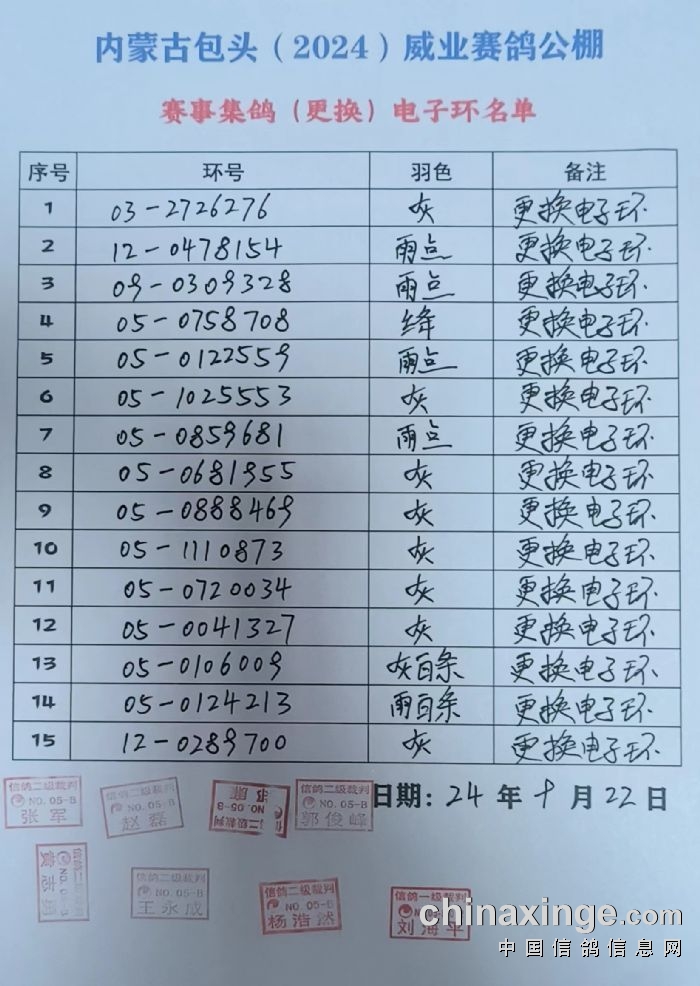 内蒙古包头（2024）威业赛鸽公棚
赛事集鸽（更换）电子环名单
序号 环号 羽色 备注
1 03-2726276 灰 更换电子环
2 12-0478154 雨点 更换电子环
3 09-0309328 雨点 更换电子环
4 05-0758708 绛 更换电子环
5 05-0122559 雨点 更换电子环
6 05-1025553 灰 更换电子环
7 05-0859681 雨点 更换电子环
8 05-0681955 灰 更换电子环
9 05-0888469 灰 更换电子环
10 05-1110873 灰 更换电子环
11 05-0720034 灰 更换电子环
12 05-0041327 灰 更换电子环
13 05-0106009 灰白条 更换电子环
14 05-0124213 雨白条 更换电子环
15 12-0289700 灰 更换电子环
日期：24年9月22日
信鸽二级裁判 NO.05-B 张军
信鸽二级裁判 NO.05-B 赵磊
信鸽二级裁判 NO.05-B
信鸽二级裁判 NO.05-B 郭俊峰
信鸽二级裁判
信鸽二级裁判 NO.05-B 王永成
信鸽二级裁判 NO.05-B 杨浩然
信鸽一级裁判 刘海平
chinaxinge.com
中国信鸽信息网